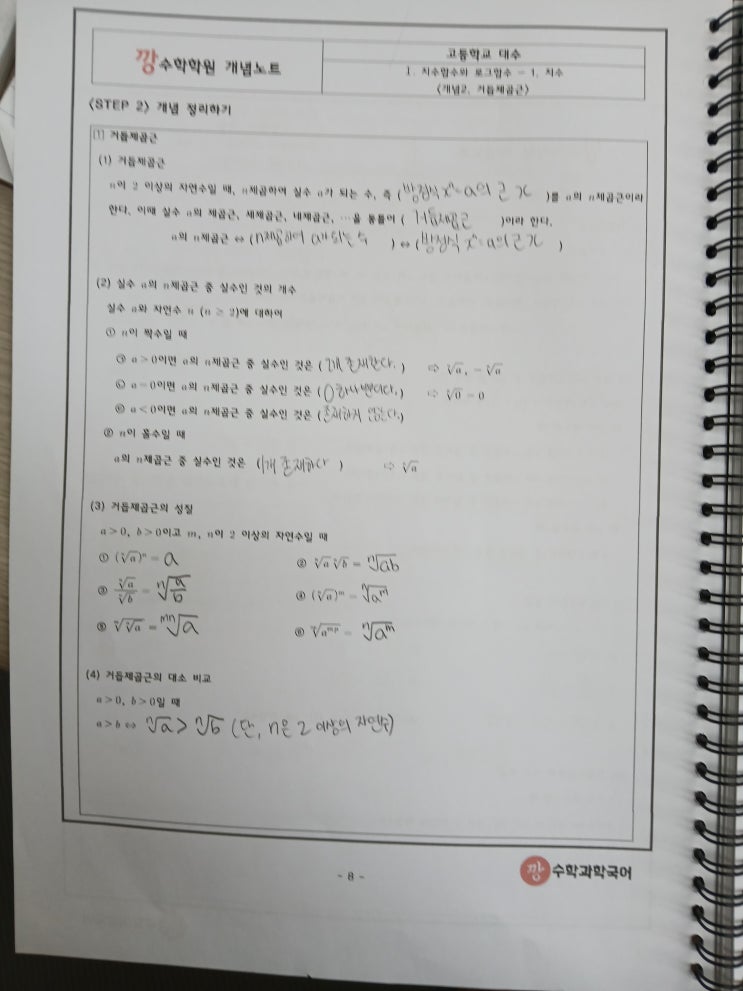 깡 수학학원 개념노트
고등학교 대수
Ⅰ. 지수함수와 로그함수 - 1. 지수
<개념2. 거듭제곱근>
<STEP 2> 개념 정리하기
(1) 거듭제곱근
(1) 거듭제곱근
n이 2 이상의 자연수일 때, n제곱하여 실수 a가 되는 수, 즉 (방정식 xⁿ=a의 근 x)를 a의 n제곱근이라
한다. 이때 실수 a의 제곱근, 세제곱근, 네제곱근, …을 통틀어 (거듭제곱근)이라 한다.
a의 n제곱근 ⇔ (n제곱하여 a가 되는 수) ⇔ (방정식 xⁿ=a의 근 x)
(2) 실수 a의 n제곱근 중 실수인 것의 개수
실수 a와 자연수 n (n ≥ 2)에 대하여
① n이 짝수일 때
㉠ a>0이면 a의 n제곱근 중 실수인 것은 (2개 존재한다.) ⇨ ⁿ√a, -ⁿ√a
㉡ a=0이면 a의 n제곱근 중 실수인 것은 (0 하나뿐이다.) ⇨ ⁿ√0=0
㉢ a<0이면 a의 n제곱근 중 실수인 것은 (존재하지 않는다.)
② n이 홀수일 때
a의 n제곱근 중 실수인 것은 (1개 존재한다) ⇨ ⁿ√a
(3) 거듭제곱근의 성질
a>0, b>0이고 m, n이 2 이상의 자연수일 때
① (ⁿ√a)ⁿ = a
② ⁿ√a ⁿ√b = ⁿ√ab
③ ⁿ√a / ⁿ√b = ⁿ√(a/b)
④ (ⁿ√a)ᵐ = ⁿ√aᵐ
⑤ ᵐ√ⁿ√a = ᵐⁿ√a
⑥ ⁿᵖ√aᵐᵖ = ⁿ√aᵐ
(4) 거듭제곱근의 대소 비교
a>0, b>0일 때
a>b ⇔ ⁿ√a > ⁿ√b (단, n은 2 이상의 자연수)
- 8 -
깡 수학과학국어